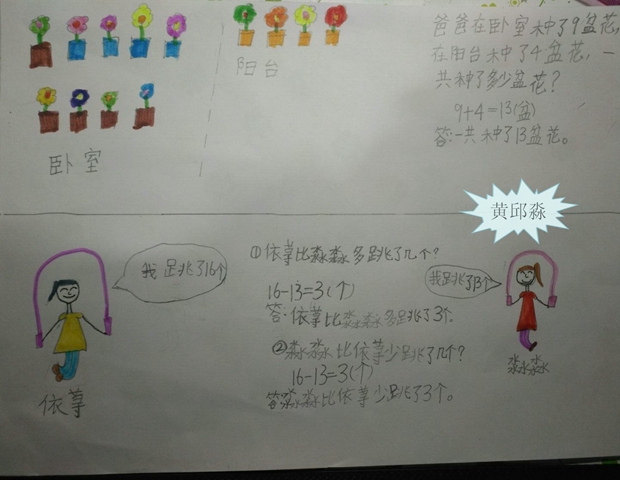 卧室
阳台
爸爸在卧室种了9盆花,
在阳台种了4盆花,一
共种了多少盆花?
9+4=13(盆)
答:一共种了13盆花。
黄邱淼
我跳了16个
依尊
①依尊比淼淼多跳了几个?
16-13=3(个)
答:依尊比淼淼多跳了3个。
②淼淼比依尊少跳了几个?
16-13=3(个)
答:淼淼比依尊少跳了3个。
我跳了13个
淼淼